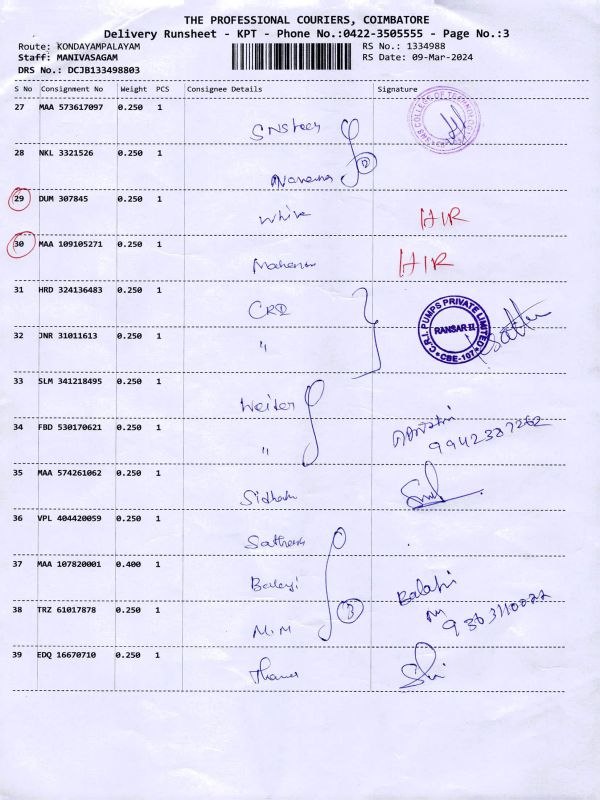 THE PROFESSIONAL COURIERS, COIMBATORE
Delivery Runsheet - KPT - Phone No.:0422-3505555 - Page No.:3
Route: KONDAYAMPALAYAM RS No.: 1334988
Staff: MANIVASAGAM RS Date: 09-Mar-2024
DRS No.: DCJB133498803
S No Consignment No Weight PCS Consignee Details Signature
27 MAA 573617097 0.250 1
SNS COLLEGE OF TECHNOLOGY
28 NKL 3321526 0.250 1
2
29 DUM 307845 0.250 1
White HIR
30 MAA 109105271 0.250 1
HIR
31 HRD 324136483 0.250 1
CRI
C.R.I. PUMPS PRIVATE LIMITED
RANSAR-II
CBE-107
32 JNR 31011613 0.250 1
"
33 SLM 341218495 0.250 1
34 FBD 530170621 0.250 1
" 9942387262
35 MAA 574261062 0.250 1
36 VPL 404420059 0.250 1
37 MAA 107820001 0.400 1
Balaji Balaji
38 TRZ 61017878 0.250 1
M.M 3 9363110022
39 EDQ 16670710 0.250 1